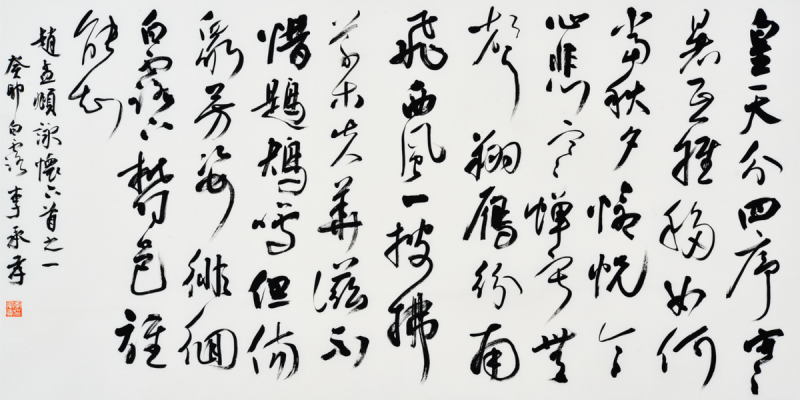 皇天分四序寒
暑互推移如何
當秋夕愴怳令
心悲寒蟬寂無
聲翔鴈紛南
飛西風一披拂
草木失華滋不
惜鶗鴂鳴但傷
衆芳萎徘徊
白露下鬱邑誰
能知
趙孟頫詠懷六首之一
癸卯白露李承孝